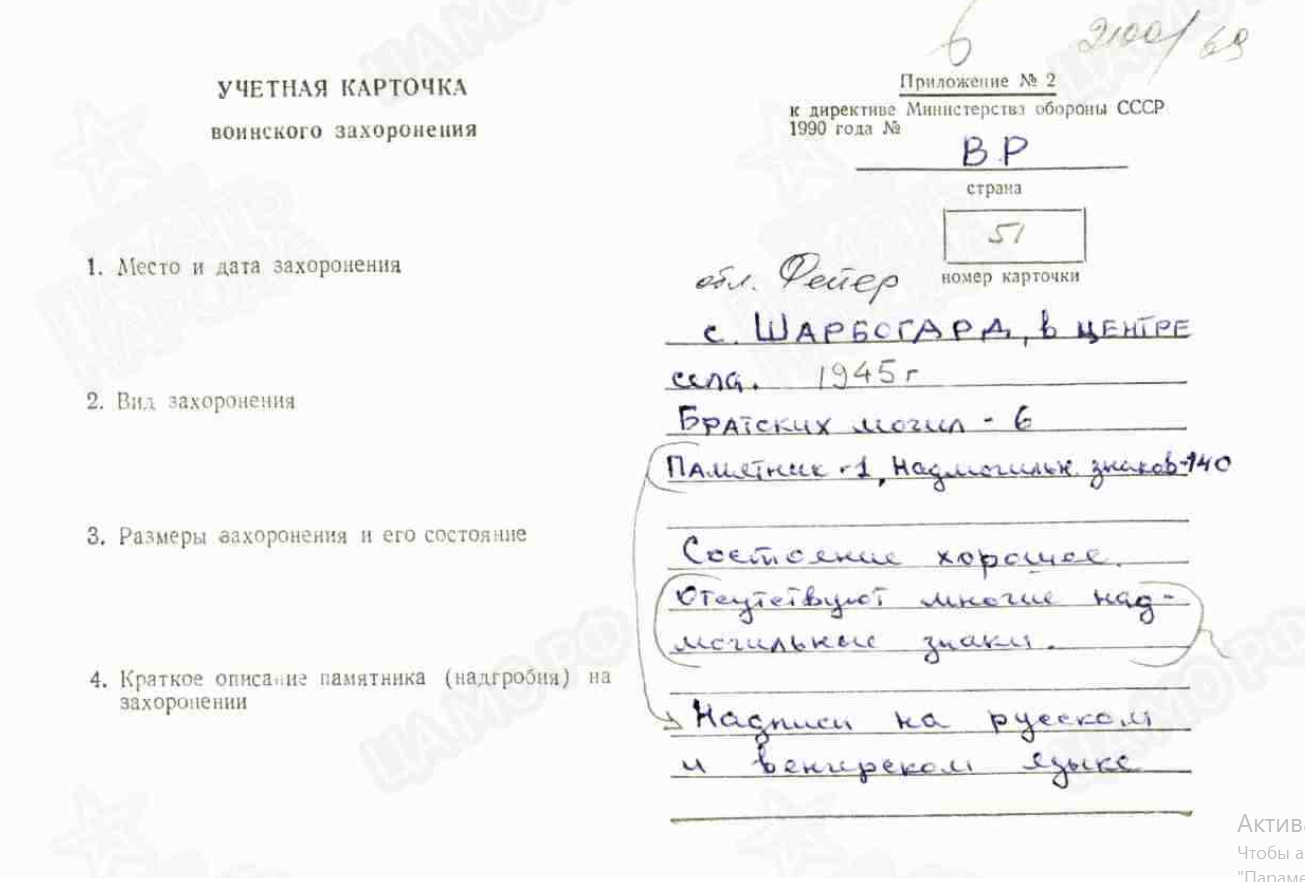 6 2100/69
УЧЕТНАЯ КАРТОЧКА
воинского захоронения
Приложение № 2
к директиве Министерства обороны СССР
1990 года №
ВР
страна
51
номер карточки
1. Место и дата захоронения
обл. Фейер
с. ШАРБОГАРД, в ЦЕНТРЕ
села. 1945 г
2. Вид захоронения
Братских могил - 6
Памятник - 1, Надмогильн знаков - 140
3. Размеры захоронения и его состояние
Состояние хорошее.
Отсутствуют многие над-
могильные знаки.
4. Краткое описание памятника (надгробия) на
захоронении
Надписи на русском
и венгерском языке
ЦАМО.РФ
Актив
Чтобы а
"Параме